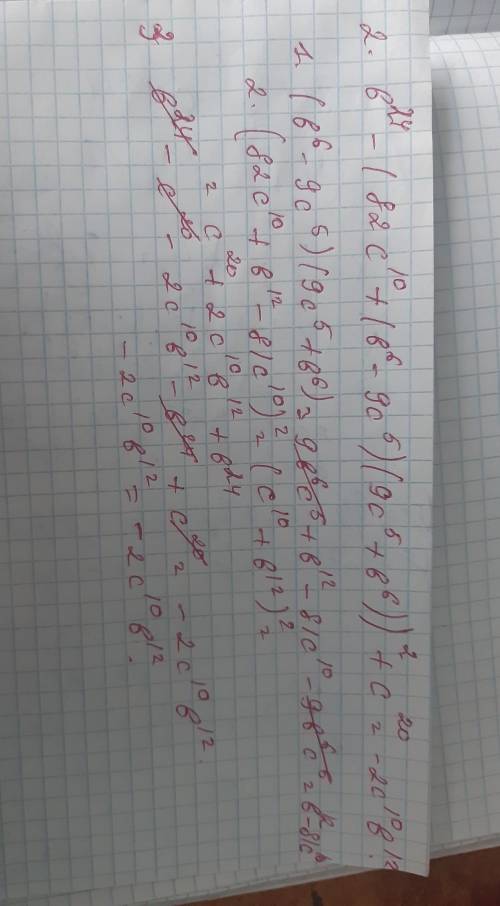 2. b²⁴ - (82c¹⁰ + (b⁶ - 9c⁵)(9c⁵ + b⁶))² + c²⁰ = -2c¹⁰b¹².
1. (b⁶ - 9c⁵)(9c⁵ + b⁶) = 9b⁶c⁵ + b¹² - 81c¹⁰ - 9b⁶c⁵ = b¹² - 81c¹⁰
2. (82c¹⁰ + b¹² - 81c¹⁰)² = (c¹⁰ + b¹²)² =
= c²⁰ + 2c¹⁰b¹² + b²⁴
3. b²⁴ - c²⁰ - 2c¹⁰b¹² - b²⁴ + c²⁰ = -2c¹⁰b¹².
- 2c¹⁰b¹² = -2c¹⁰b¹².